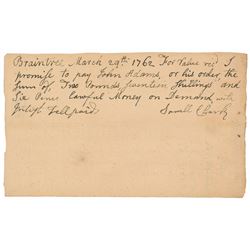 Braintree March 29th 1762 For Value recd I
promise to pay John Adams, or his order, the
Sum of, Two Pounds seventeen Shillings and
Six Pence Lawful Money on Demand, with
Intrst till paid Samll Clark